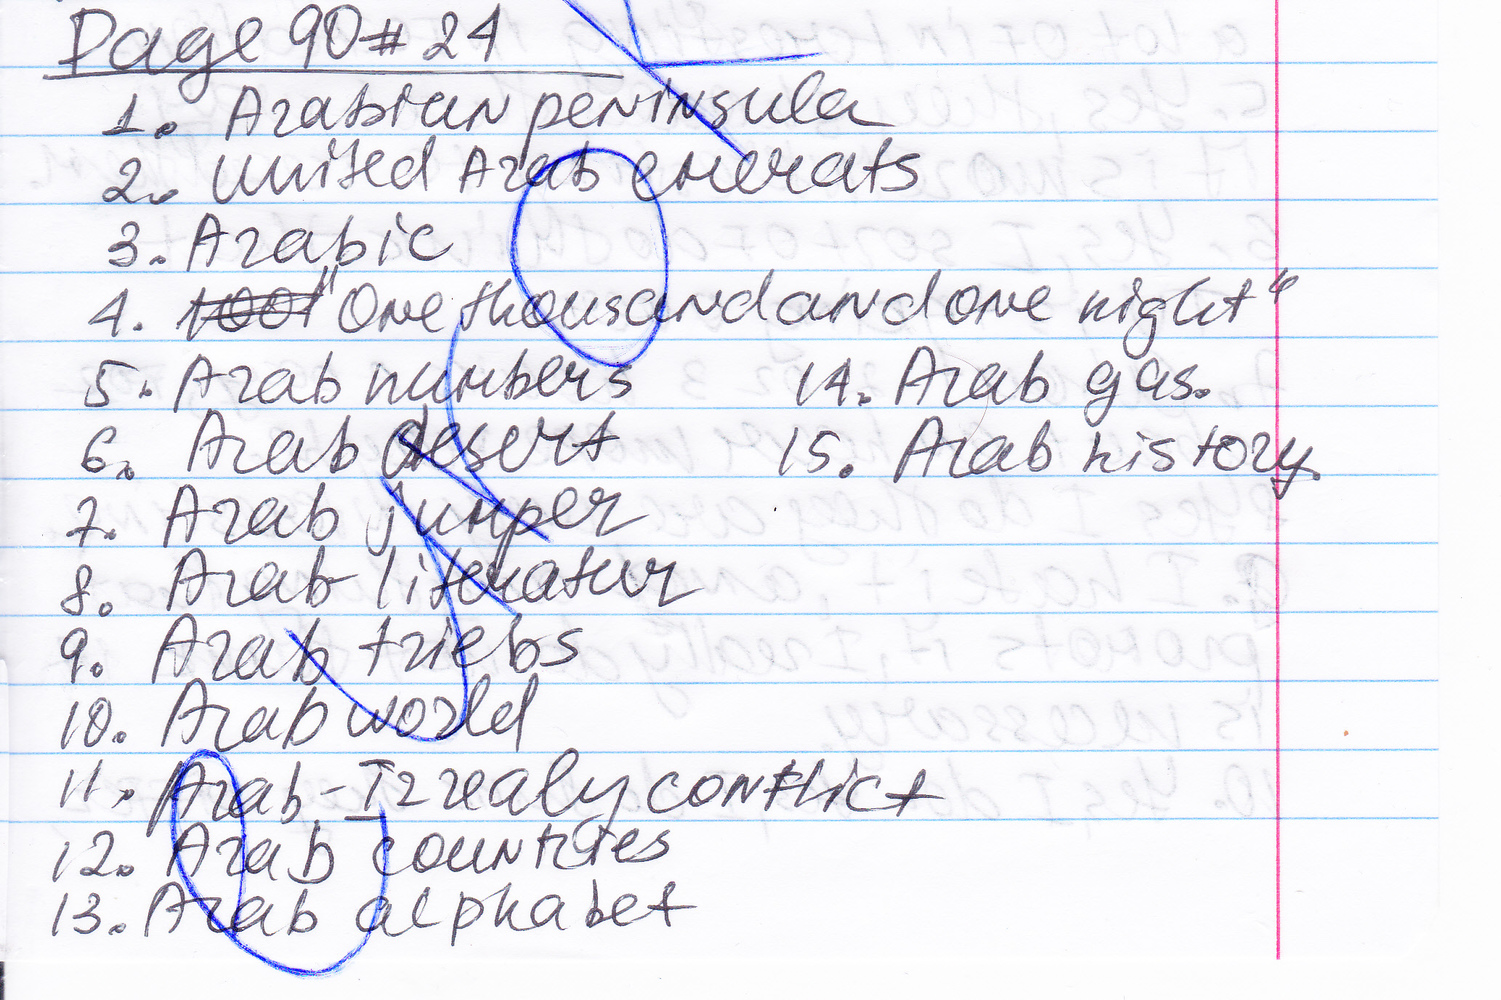 Page 90 # 24
1. Arabian peninsula
2. United Arab emerats
3. Arabic
4. 1001 "One thousand and one night"
5. Arab numbers
14. Arab gas.
6. Arab desert
15. Arab history
7. Arab jumper
8. Arab literatur
9. Arab triebs
10. Arab world
11. Arab-Izrealy conflict
12. Arab countries
13. Arab alphabet